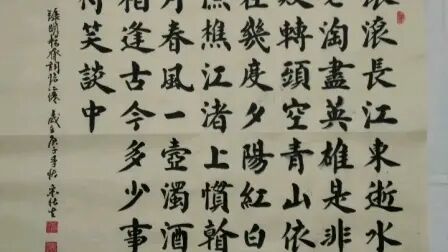 滚長江東逝水
淘盡英雄是非
敗轉頭空青山依
在幾度夕陽紅白
漁樵江渚上慣
月春風一壺濁酒
相逢古今多少事
付笑談中
錄明楊慎詞臨江仙 歲在庚子年